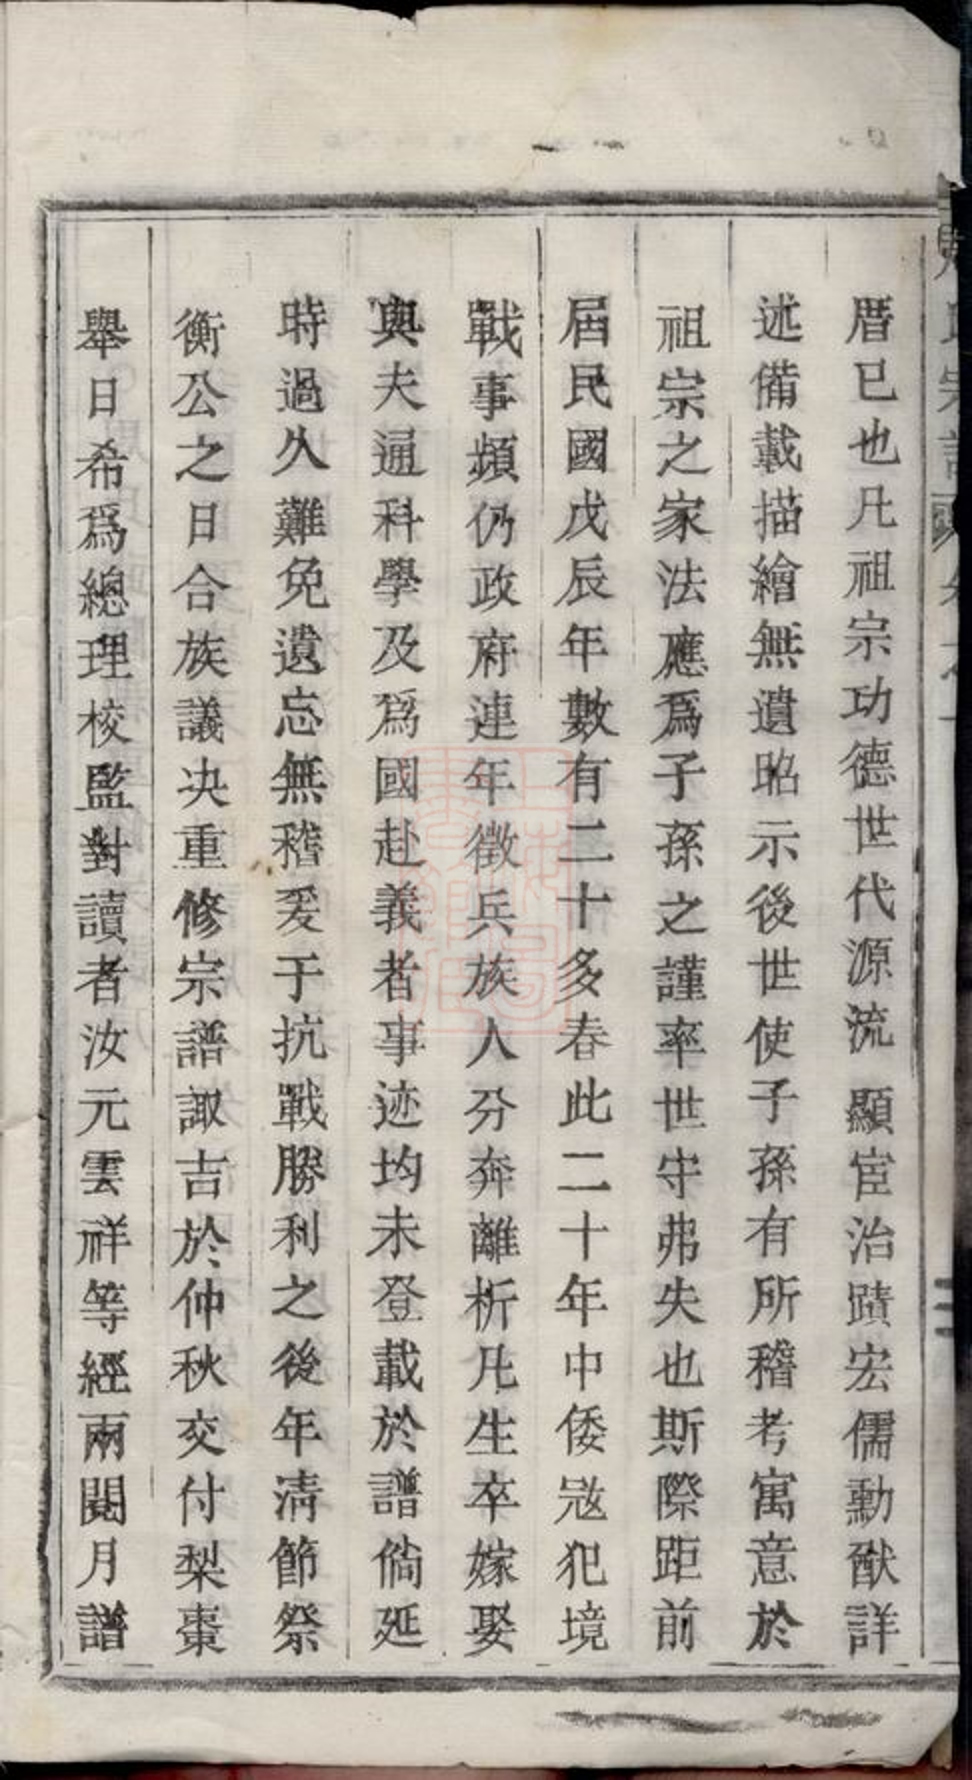 厝已也凡祖宗功德世代源流顯宦治蹟宏儒勳猷詳
述備載描繪無遺昭示後世使子孫有所稽考寓意於
祖宗之家法應爲子孫之謹率世守弗失也斯際距前
屆民國戊辰年數有二十多春此二十年中倭宼犯境
戰事頻仍政府連年徵兵族人分奔離析凡生卒嫁娶
與夫通科學及爲國赴義者事迹均未登載於譜倘延
時過久難免遺忘無稽爰于抗戰勝利之後年清節祭
衡公之日合族議决重修宗譜諏吉於仲秋交付梨棗
舉日希爲總理校監對讀者汝元雲祥等經兩閱月譜